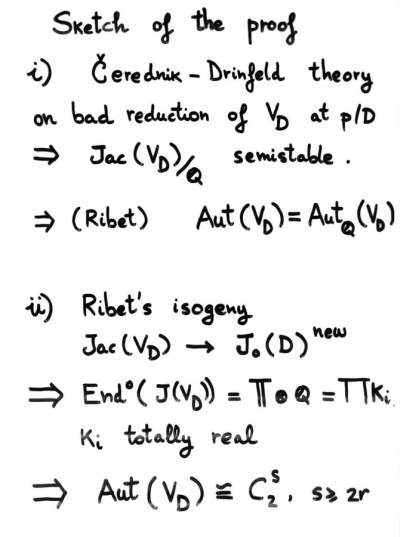 Sketch of the proof
i) Čerednik - Drinfeld theory
on bad reduction of V_D at p/D
⇒ Jac(V_D)/ℚ semistable.
⇒ (Ribet) Aut(V_D) = Aut_ℚ(V_D)
ii) Ribet's isogeny
Jac(V_D) → J_0(D)^new
⇒ End°(J(V_D)) = 𝕋⊗ℚ = ∏K_i
K_i totally real
⇒ Aut(V_D) ≅ C_2^s, s ⩾ 2r